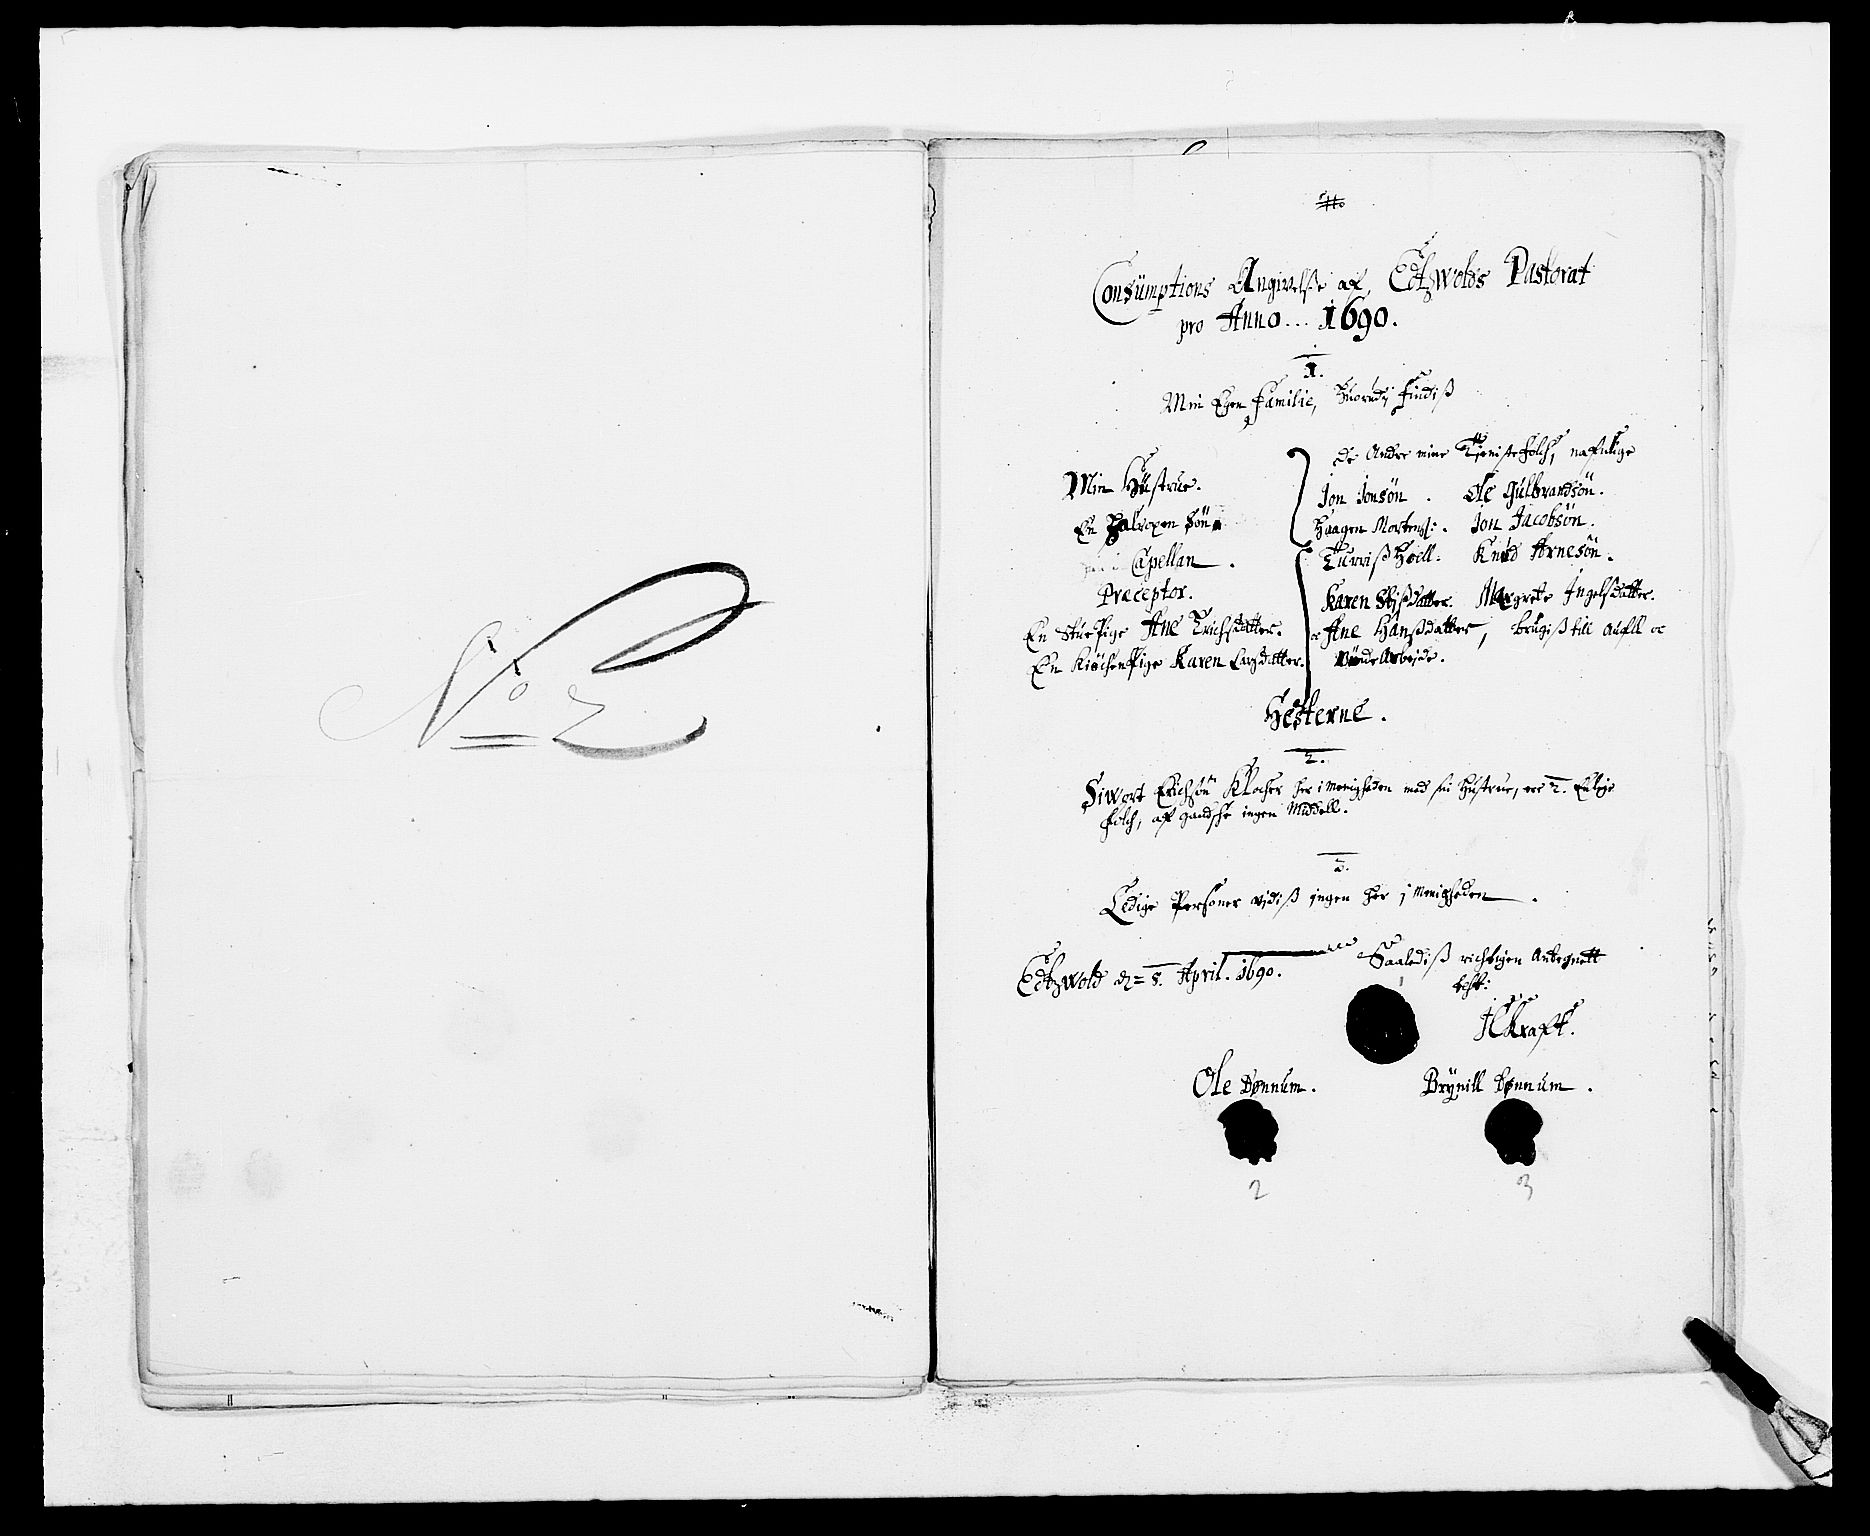 No 2
Consümptions Angivelße af, Edtzwolds Pastorat
pro Anno... 1690.
1.
Min Egen Familie, Huorudj findiß
Min Hüstrue.
En halvoxen Sön
Capellan.
Præceptor.
En StuePige Ane Erichsdatter.
En KiöchenPige Karen Larsdatter.
De Andre mine Tienistefolch, nafnlige
Jon Jonsön. Ole Gulbrandsön.
Haagen Mortens: Jon Jacobsön.
Turriß Knud Arnesön.
Karen datter. Margrete Ingelsdatter.
oc Ane Hanßdatter, brugiß till Aufll oc
Arbejde.
Hesterne.
2.
Siwort Erichsön Klocher her i Menigheden med sin Hustrue, ere 2.
folch, af gandsche ingen Middell.
3.
Ledige Personer vidiß ingen her j Menigheden.
Edtzwold d = 8. April. 1690.
Saalediß richtigen Antegnett
best:
Kraft.
Ole Dønnum. Brynill Dønnum.
2 3